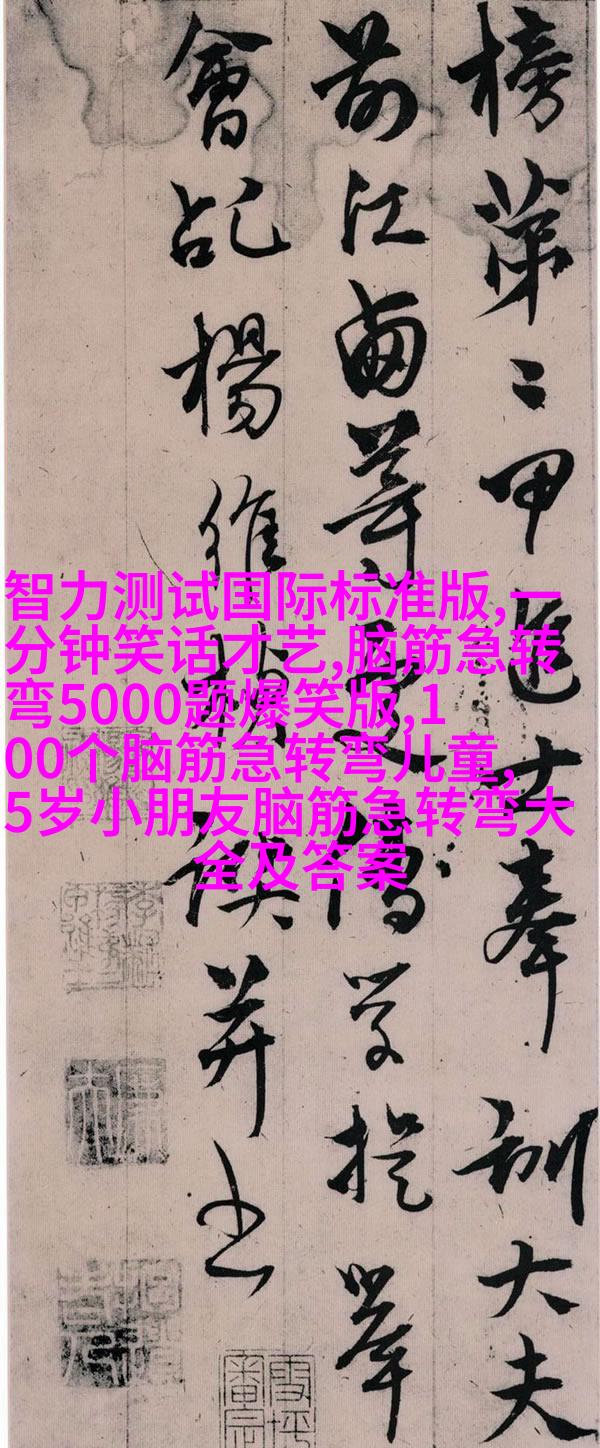 榜第二甲進士奉訓大夫
前江西等處儒學提舉
會乩楊維楨譔并書
智力测试国际标准版,一
分钟笑话才艺,脑筋急转
弯5000题爆笑版,1
00个脑筋急转弯儿童,
5岁小朋友脑筋急转弯大
全及答案